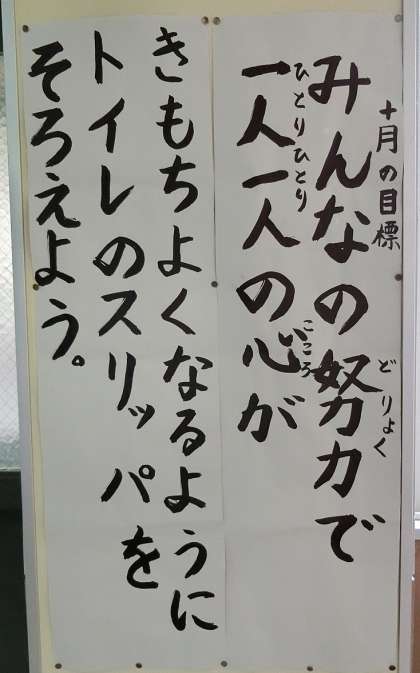 十月の目標
みんなの努力で
どりょく
一人一人の心が
ひとりひとり
こころ
きもちよくなるように
トイレのスリッパを
そろえよう。